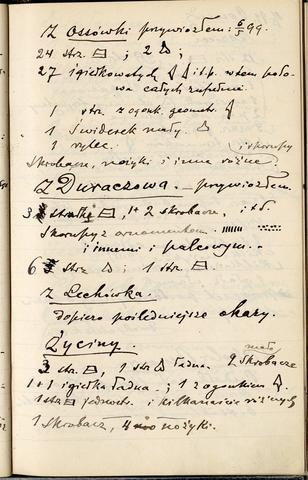 Z Ossówki przywiozłem: 6/5 99.
24 strz. ; 2 ;
27 igiełkowatych i t.p. w tem poło-
wa całych zupełnie.
1 strz. z ogonk. geometr.
1 Świderek mały.
1 rylec. i skorupy
Skrobacze, nożyki i inne różne
Z Duraczowa. — przywiozłem.
3 strzałki , 1+2 skrobacze, i t.d.
Skorupy z ornamentem
i innemi i palcowym.
6 strz ; 1 strz.
Z Lechówka.
dopiero pośledniejsze okazy.
Życiny. małe
3 str. , 1 str ładna. 2 skrobacze
1+1 igiełka ładna ; 1 z ogonkiem
1 str i kilkanaście różnych
1 skrobacz, 4 nożyki.